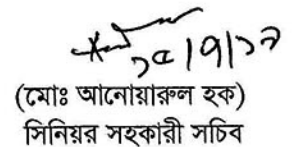 ১৫/৭/১৯
(মোঃ আনোয়ারুল হক)
সিনিয়র সহকারী সচিব